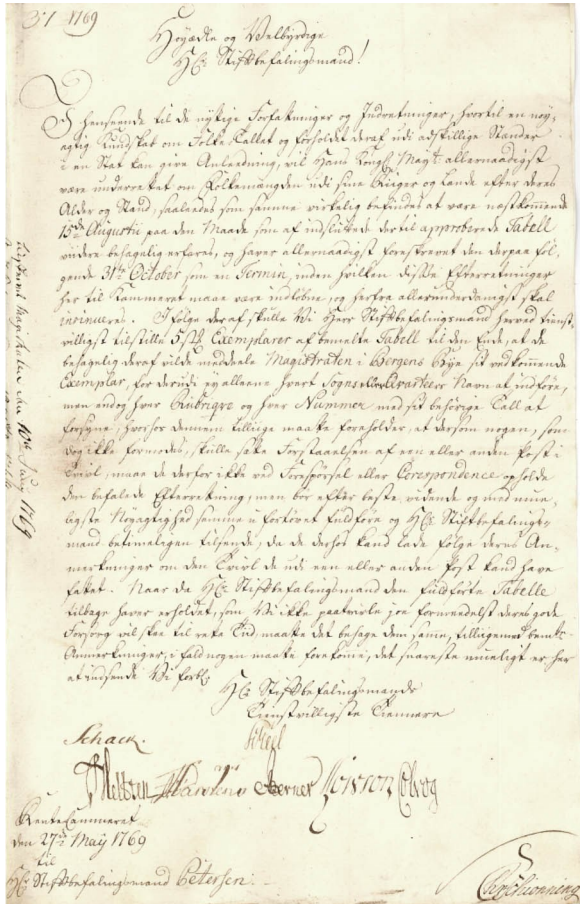 37 1769
Høyædle og Velbyrdige
Hr. Stiftbefalingsmand!
I henseende til de nyttige Forfatninger og Indretninger, hvortil en nøy-
agtig Kundskab om Folke-Tallet og forholdet deraf udi adskillige Stænder
i en Stat kan give Anleedning, vil Hans Kongl. Mayt. allernaadigst
være underrettet om Folkemængden udi sine Riiger og Lande efter deres
Alder og Stand, saaledes som samme virkelig befindes at være næstkommende
15de Augustii paa den Maade som af indsluttede dertil approberede Tabell
viidere behagelig erfares, og haver allernaadigst foreskrevet den derpaa føl-
gende 31te October som en Termin, inden hvilken disse Efterretninger
her til Kammeret maae være indløbne, og herfra allerunderdanigst skal
insinueres. I følge deraf skulle Vi Herr Stiftbefalingsmand herved tienst-
villigst tilstille 5 stk Exemplarer af bemelte Tabell til den Ende, at de
behagelig deraf vilde meddeele Magistraten i Bergens Bye sit vedkommende
Exemplar, for derudi ey alleene hvert Sogns eller Qvarteers Navn at indføre,
men endog hver Rubriqve og hver Nummer med sit behørige Tall at
forsyne, hvorhos dennem tillige maatte foreholdes, at dersom nogen, som
dog ikke formodes, skulle sætte Forstaaelsen af een eller anden Post i
Tvivl, maae de derfor ikke ved Forespørsel eller Correspondence opholde
den befalede Efterretning, men bør efter beste vidende og med mue-
ligste Nøyagtighed samme ufortøvet fuldføre og Hr. Stiftbefalings-
mand betimeligen tilsende, da de derhos kand lade følge deres An-
merkninger om den Tvivl de udi een eller anden Post kand have
fattet. Naar da Hr. Stiftbefalingsmand den fuldførte Tabelle
tilbage haver erholdet, som Vi ikke paatvivle jo formedelst deres gode
Forsorg vil skee til rette Tiid, maatte det behage dem samme, tilligemed bemte
Anmerkninger, i fald nogen maatte forekomme, det snareste mueligt er her
at indsende. Vi forbl.
Hr. Stiftbefalingsmands
Tienstvilligste Tiennere
Schack.
Rente Cammeret
den 27de May 1769
til
Hr. Stiftbefalingsmand Petersen.